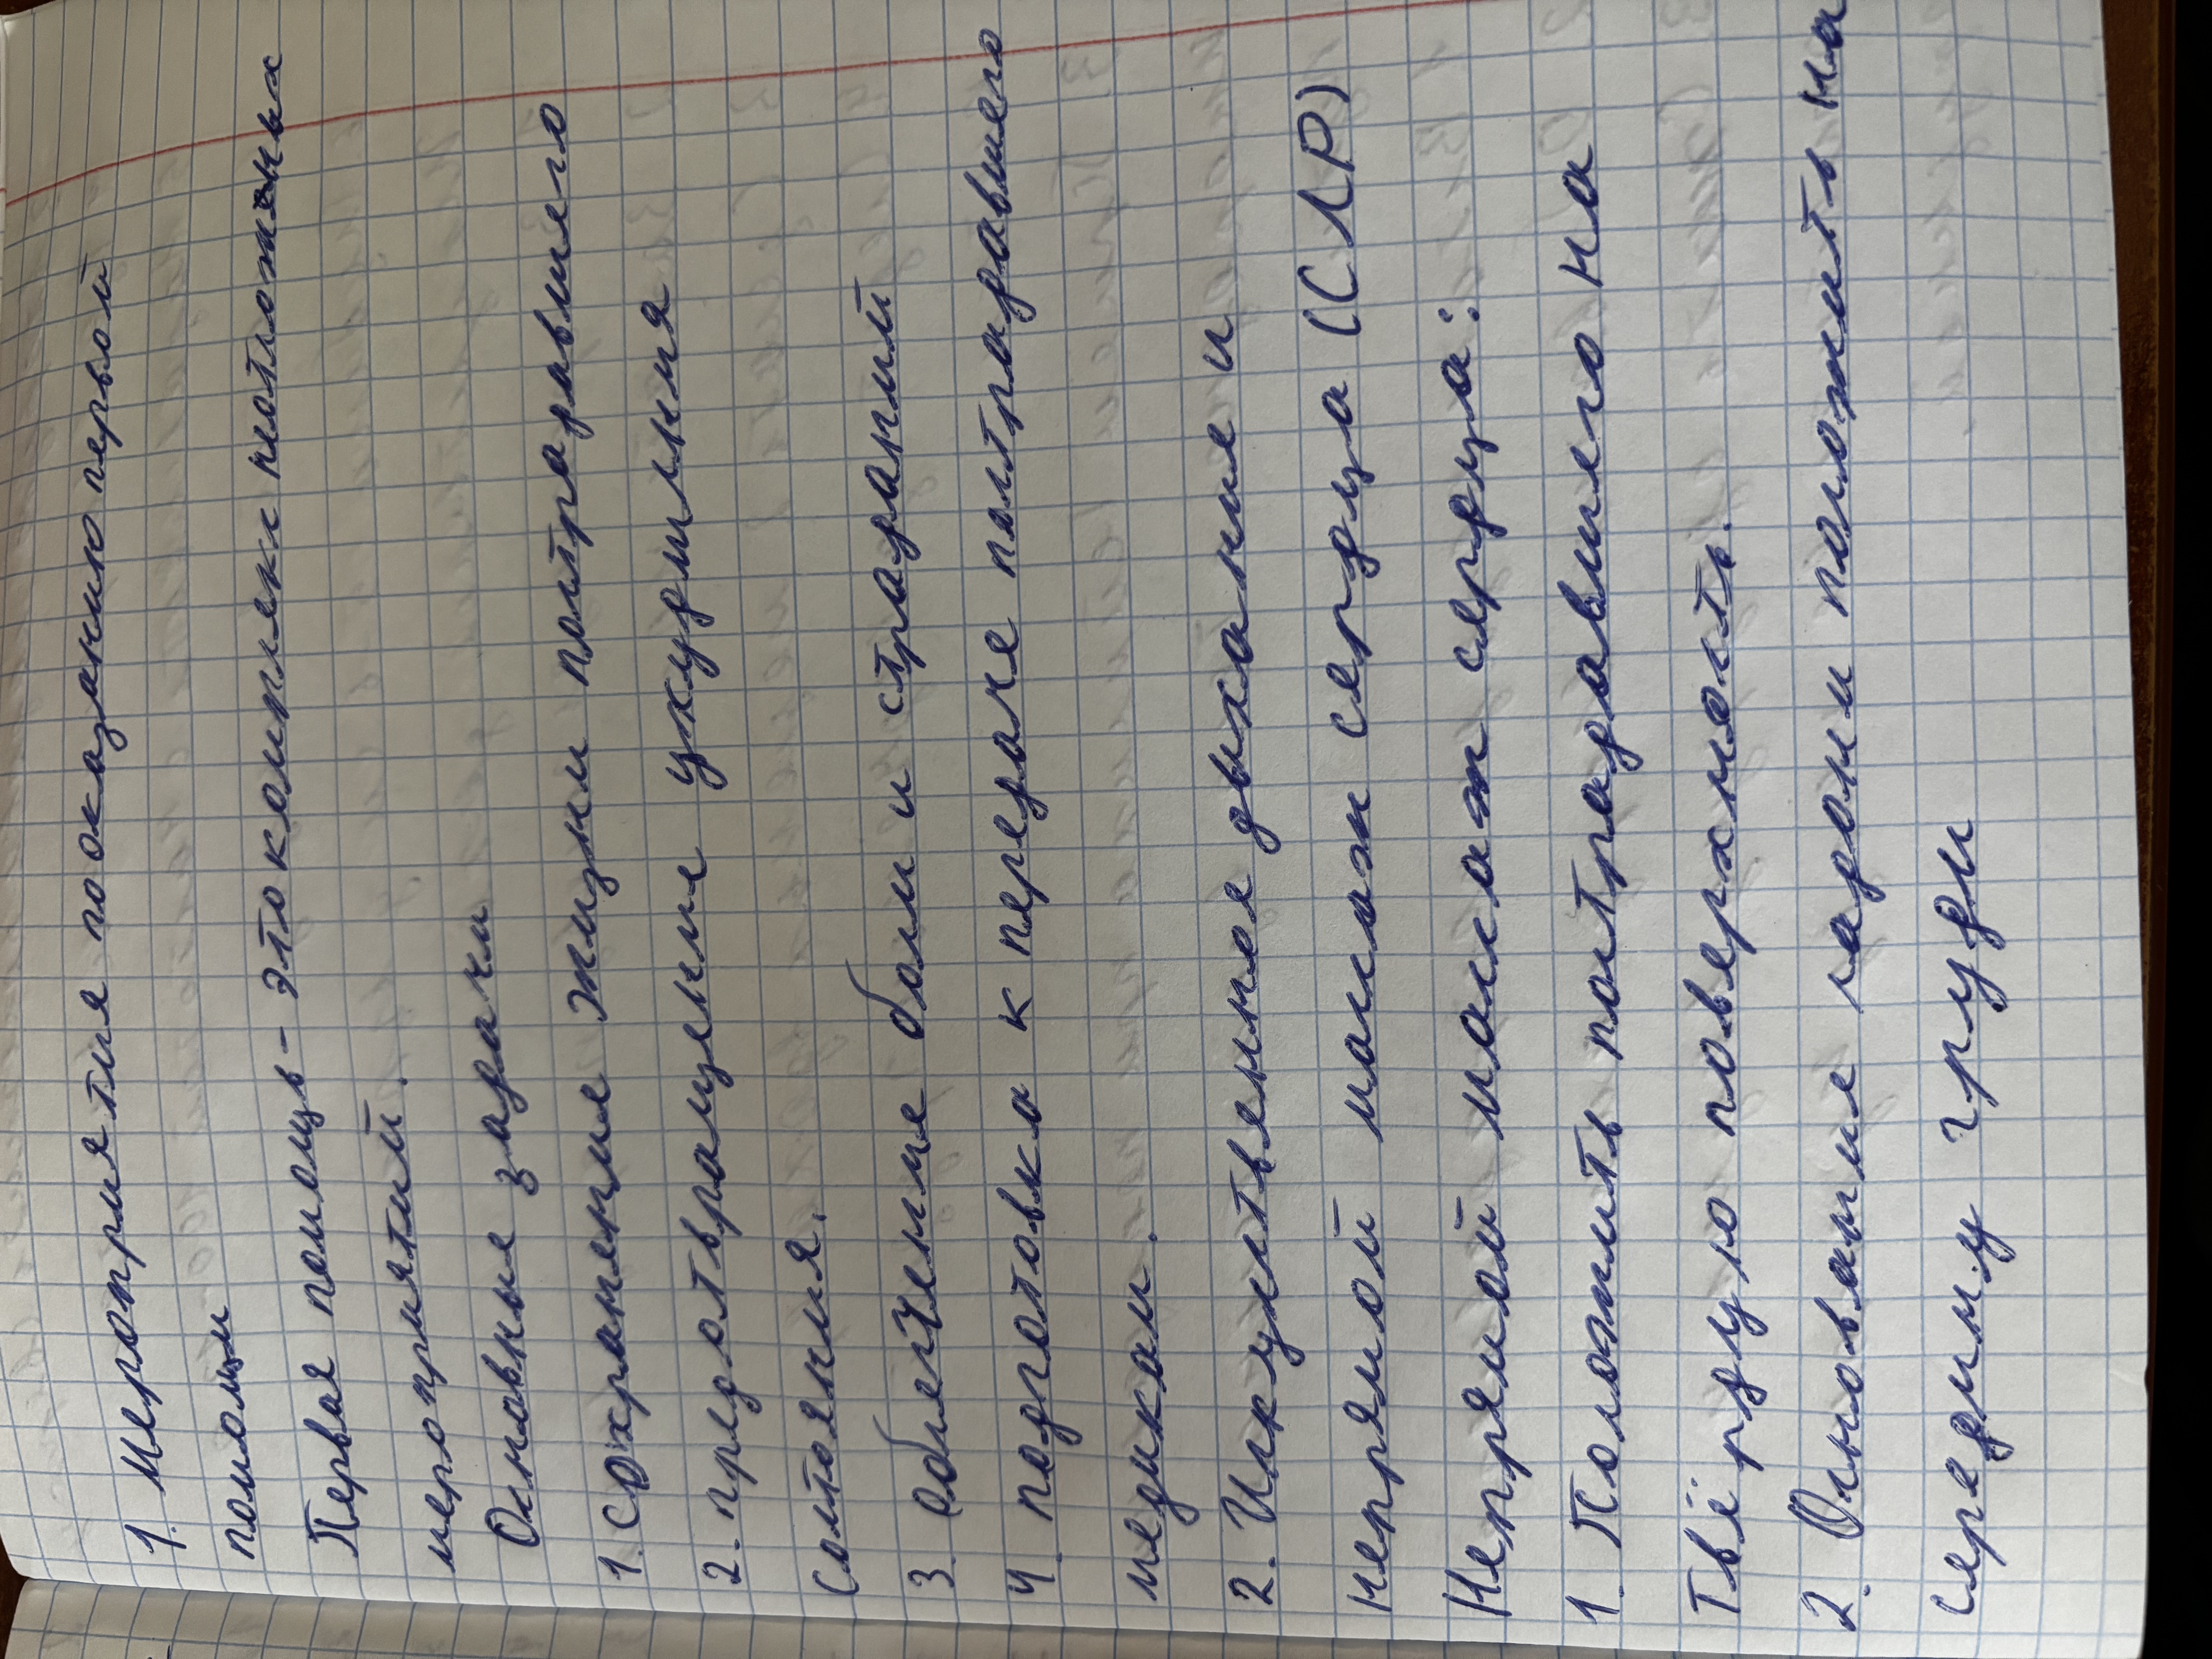 1. Мероприятия по оказанию первой
помощи
Первая помощь - это комплекс неотложных
мероприятий.
Основные задачи
1. сохранение жизни пострадавшего
2. предотвращение ухудшения
состояния.
3. облегчение боли и страданий
4. подготовка к передаче пострадавшего
медикам.
2. Искуственное дыхание и
непрямой массаж сердца (СЛР)
Непрямой массаж сердца:
1. Положить пострадавшего на
твёрдую поверхность.
2. Основание ладони положить на
середину груди